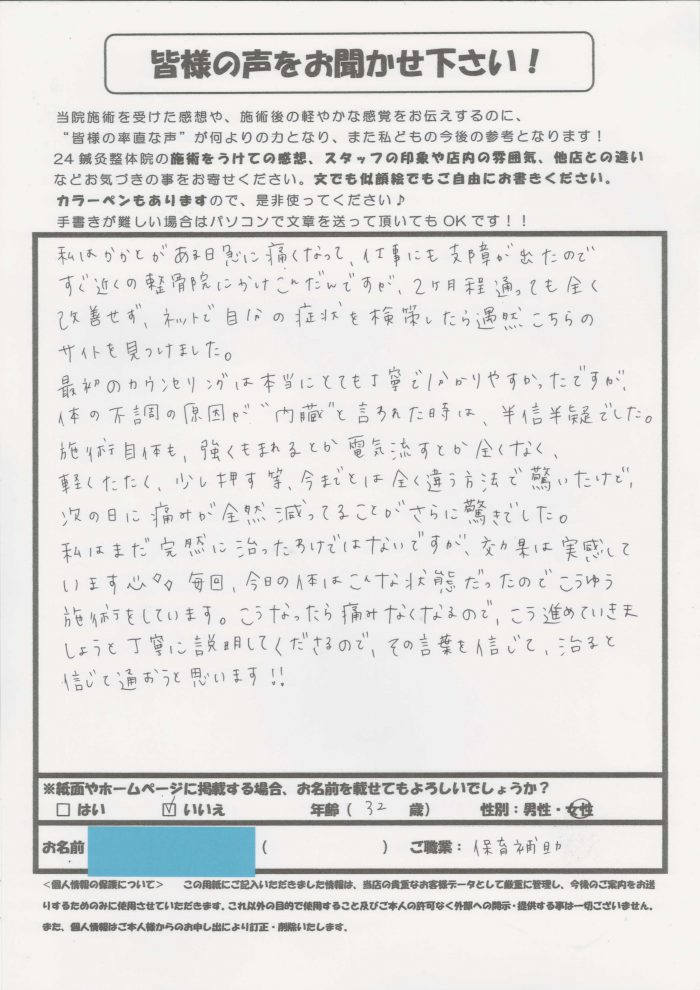 皆様の声をお聞かせ下さい！
当院施術を受けた感想や、施術後の軽やかな感覚をお伝えするのに、
“皆様の率直な声”が何よりの力となり、また私どもの今後の参考となります！
24鍼灸整体院の施術をうけての感想、スタッフの印象や店内の雰囲気、他店との違い
などお気づきの事をお寄せください。文でも似顔絵でもご自由にお書きください。
カラーペンもありますので、是非使ってください♪
手書きが難しい場合はパソコンで文章を送って頂いてもOKです！！
私はかかとがある日急に痛くなって、仕事にも支障が出たので
すぐ近くの整骨院にかけこんだんですが、2ヶ月程通っても全く
改善せず、ネットで自分の症状を検策したら遇然こちらの
サイトを見つけました。
最初のカウンセリングは本当にとても丁寧で分かりやすかったですが、
体の不調の原因が“内臓”と言われた時は、半信半疑でした。
施術自体も、強くもまれるとか電気流すとか全くなく、
軽くたたく、少し押す等、今までとは全く違う方法で驚いたけど、
次の日に痛みが全然減ってることがさらに驚きでした。
私はまだ完然に治ったわけではないですが、効果は実感して
います 毎回、今日の体はこんな状態だったのでこうゆう
施術をしています。こうなったら痛みなくなるので、こう進めていきま
しょうと丁寧に説明してくださるので、その言葉を信じて、治ると
信じて通おうと思います!!
※紙面やホームページに掲載する場合、お名前を載せてもよろしいでしょうか？
□ はい ☑ いいえ 年齢（ 32 歳） 性別：男性・女性
お名前 （ ） ご職業：保育補助
＜個人情報の保護について＞ この用紙にご記入いただきました情報は、当店の貴重なお客様データとして厳重に管理し、今後のご案内をお送
りするためのみに使用させていただきます。これ以外の目的で使用すること及びご本人の許可なく外部への開示・提供する事は一切ございません。
また、個人情報はご本人様からのお申し出により訂正・削除いたします。